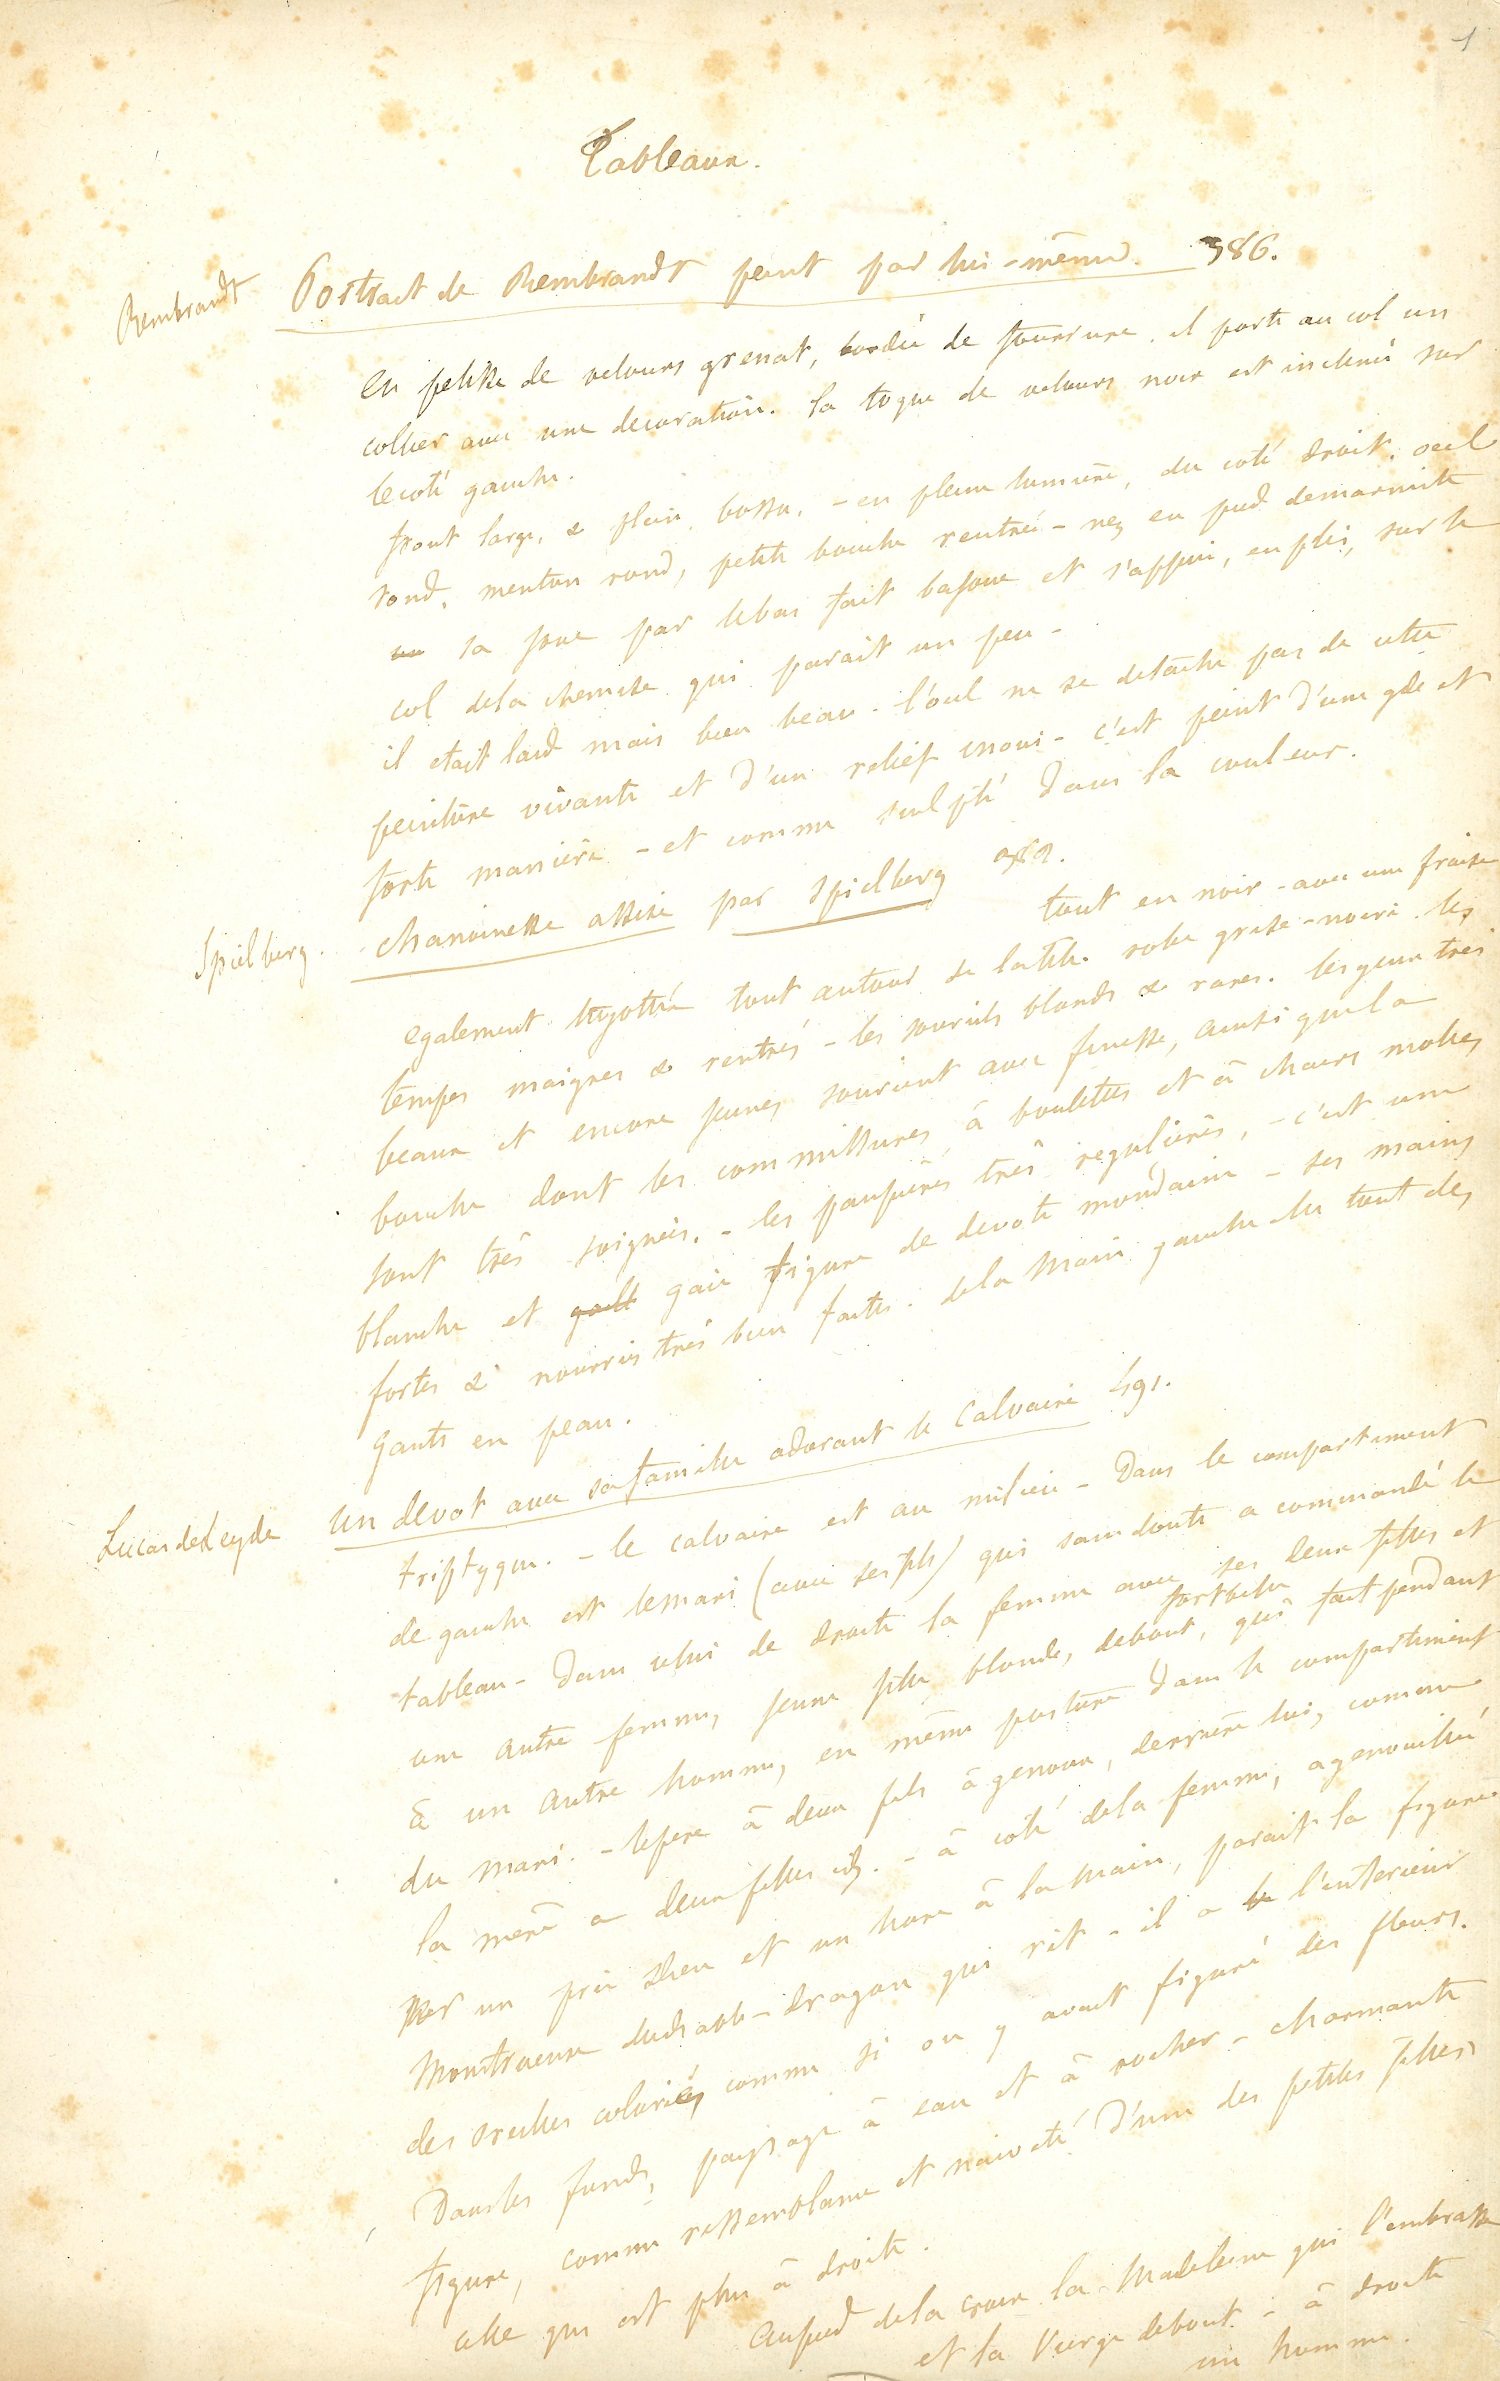 1
Tableaux.
Rembrandt
Portrait de Rembrandt peint par lui-même. 386.
En pelisse de velours grenat, bordée de fourrure. il porte au col un
collier avec une decoration. la toque de velours noir est inclinée sur
le coté gauche.
front large, & plein, bossu, - en pleine lumière, du coté droit. oeil
rond, menton rond, petite bouche rentrée - nez en pied de marmite
sa joue par le bas fait bajoue et s'appuie, en plis, sur le
col de la chemise qui parait un peu -
il etait laid mais bien beau. l'oeil ne se detache pas de cette
peinture vivante et d'un relief inoui - c'est peint d'une gde et
forte manière - et comme sculpté dans la couleur.
Spielberg.
chanoinesse assise par Spielberg
tout en noir - avec une fraise
egalement tuyottée tout autour de la tête. robe grise-noire. les
tempes maigres & rentrées - les sourcils blonds & rares. les yeux très
beaux et encore jeunes sourient avec finesse, ainsi que la
bouche dont les commissures, à boulettes et à chairs molles
sont très soignées. - les paupières très regulières, - c'est une
blanche et gaie figure de devote mondaine - ses mains
fortes & nourries très bien faites. de la main gauche elle tient des
gants en peau.
Lucas de Leyde
un devot avec sa famille adorant le Calvaire 491.
triptyque. - le calvaire est au milieu - Dans le compartiment
de gauche est le mari (avec ses fils) qui sans doute a commandé le
tableau - Dans celui de droite la femme avec ses deux filles et
une autre femme, jeune fille blonde, fort belle debout, qui fait pendant
à un autre homme, en même posture dans le compartiment
du mari. - le père à deux fils à genoux, derrière lui, comme
la mère a deux filles id. - à coté de la femme, agenouillée
sur un prie Dieu et un livre à la main, parait la figure
monstrueuse du diable-dragon qui rit - il a l'interieur
des oreilles coloriées comme si on y avait figuré des fleurs.
Dans les fonds, paysage à eau et à rocher - charmante
figure, comme ressemblance et naiveté d'une des petites filles,
celle qui est plus à droite.
Au pied de la croix la Madeleine qui l'embrasse
et la Vierge debout. - à droite
un homme.